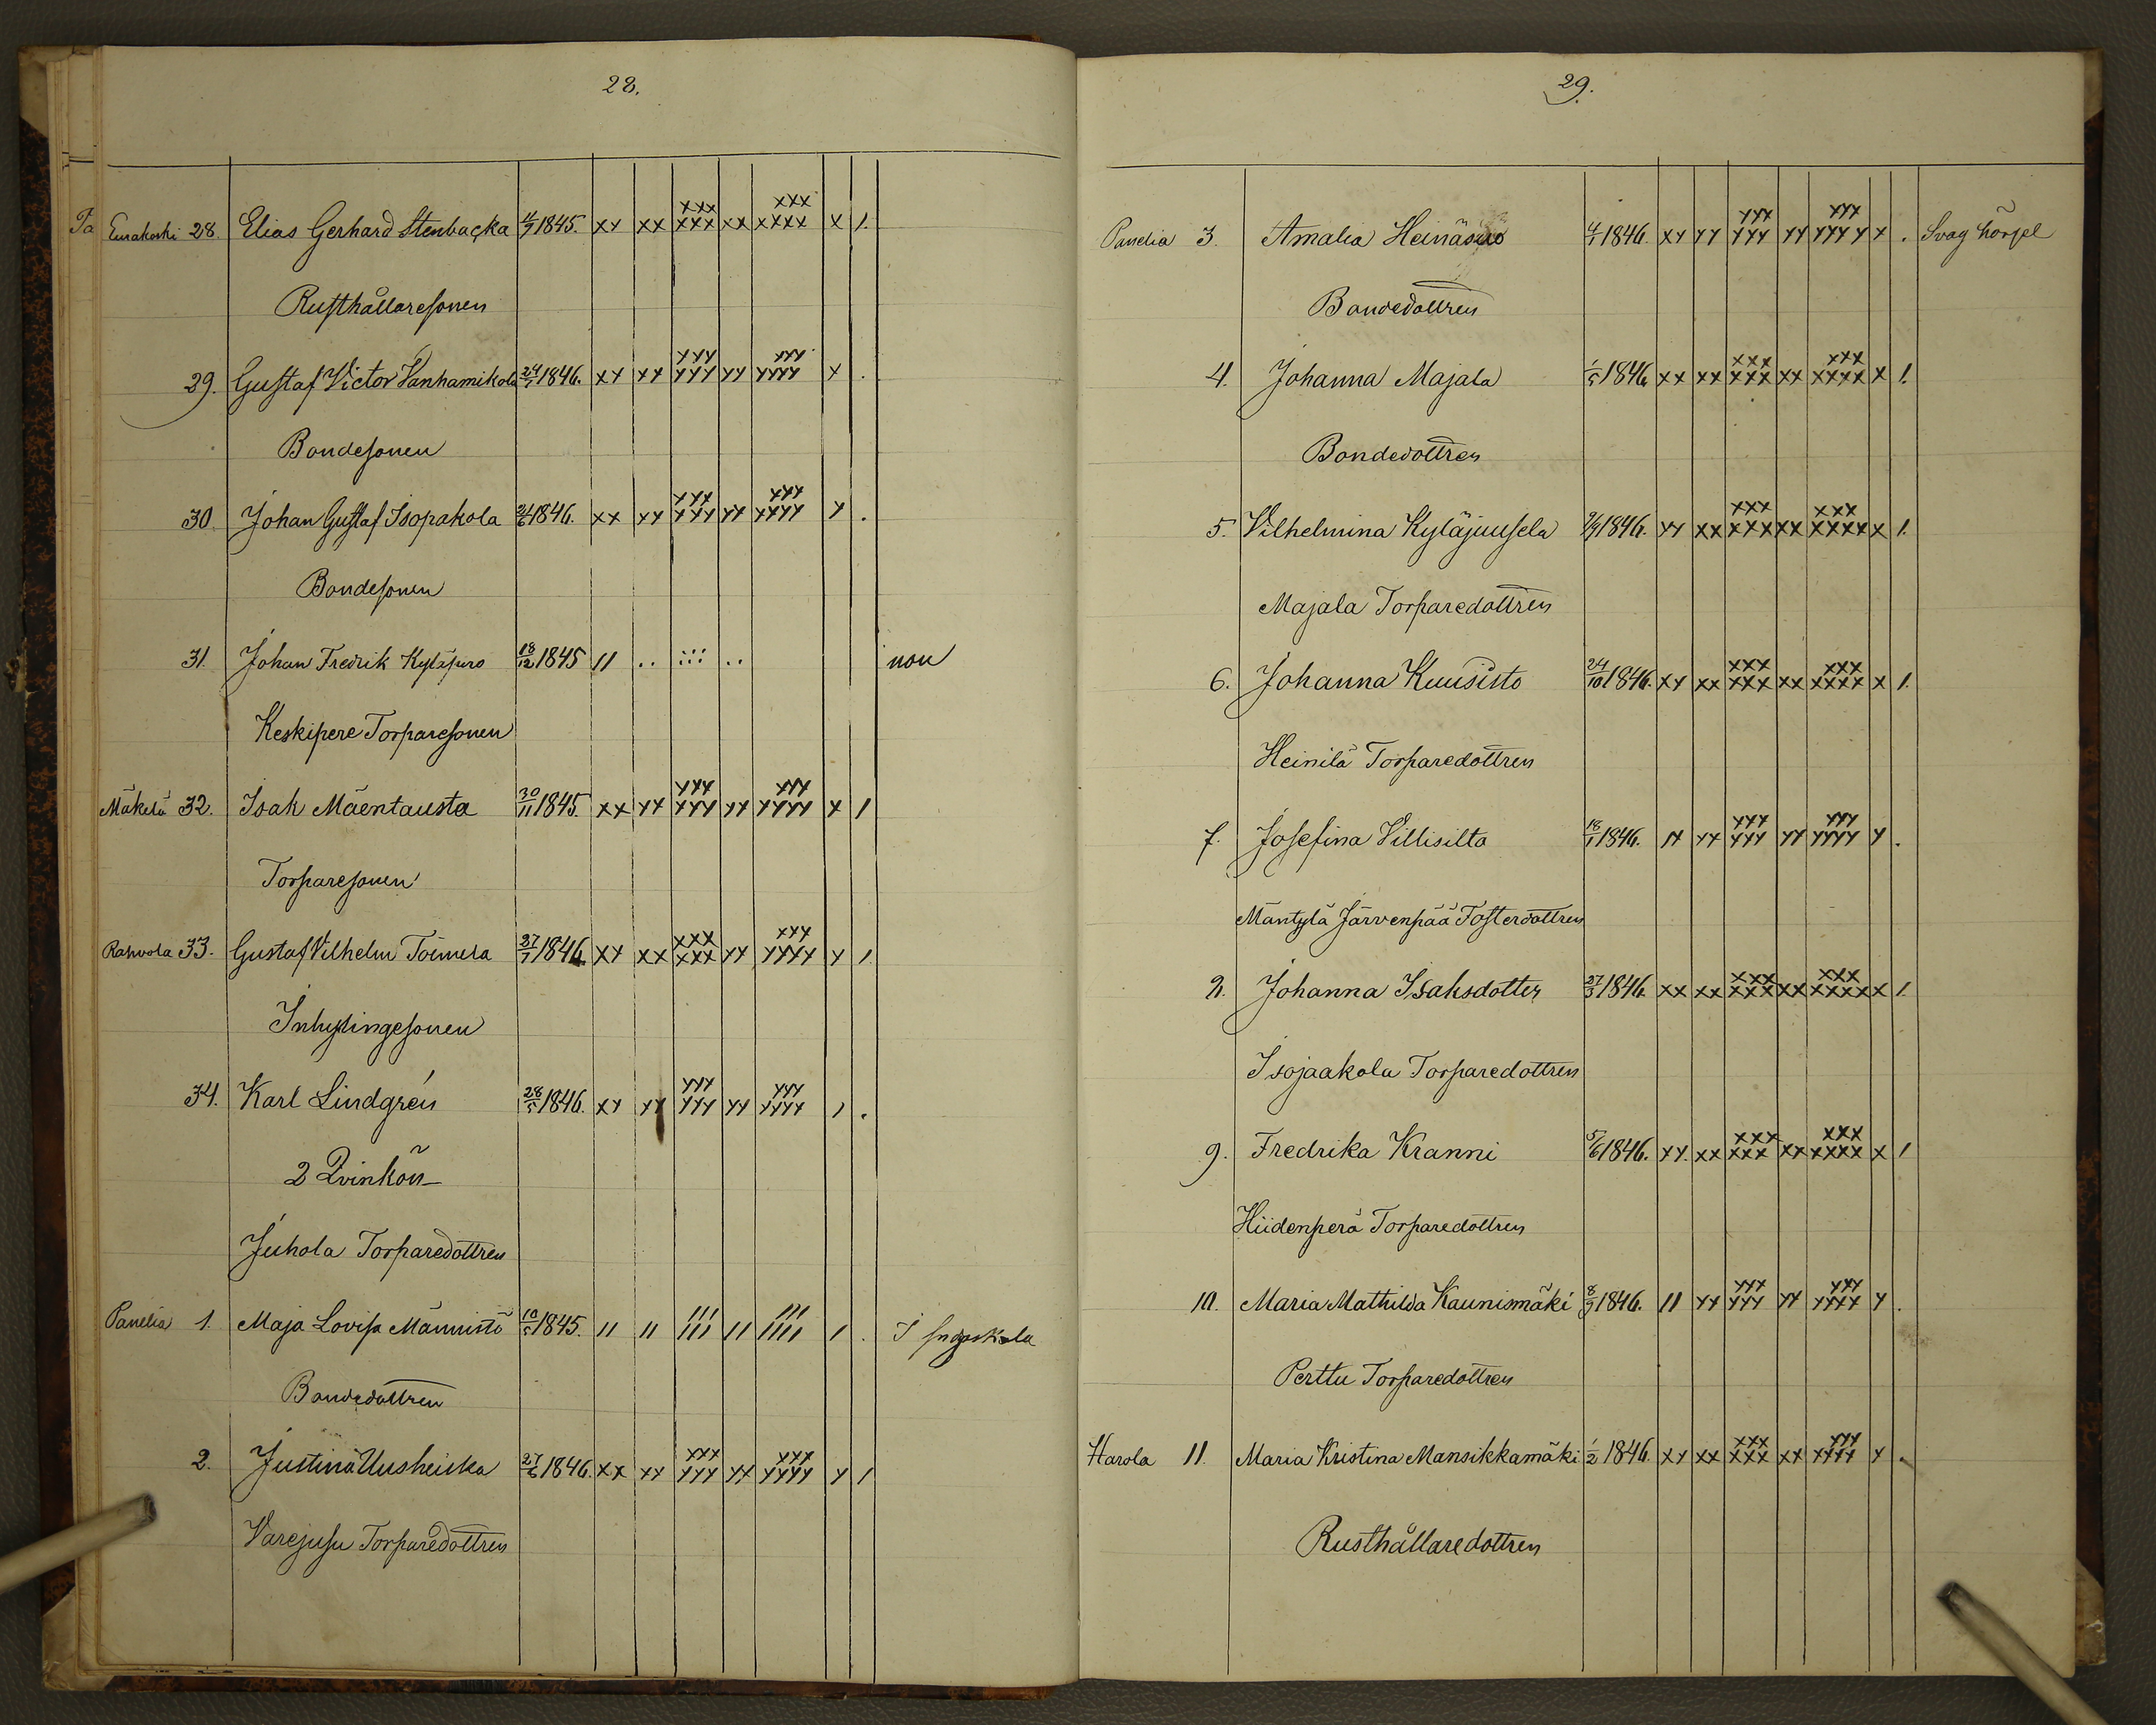 28.
Eurakoski 28. Elias Gerhard Stenbacka 4/7 1845. xx xx xxx xxx xx xxx xxxx x 1.
Rusthållaresonen
29. Gustaf Victor Vanhamikola 24/1 1846. xx xx xxx xxx xx xxx xxxx x .
Bondesonen
30. Johan Gustaf Isopakola 2/6 1846. xx xx xxx xxx xx xxx xxxx x .
Bondesonen
31. Johan Fredrik Kyläpuro 18/12 1845 11 .. ::: .. non
Keskipere Torparesonen
Mäkelä 32. Isak Mäentausta 30/11 1845. xx xx xxx xxx xx xxx xxxx x 1
Torparesonen
Rahvola 33. Gustaf Vilhelm Toimela 27/7 1846 xx xx xxx xxx xx xxx xxxx x 1
Inhysingesonen
34. Karl Lindgrén 28/5 1846. xx xx xxx xxx xx xxx xxxx 1 .
2 Qvinkön
Juhola Torparedottren
Panelia 1. Maja Lovisa Männistö 10/5 1845. 11 11 111 111 11 111 1111 1 . I
Bondedottren
2. Justina Uusheiska 27/6 1846. xx xx xxx xxx xx xxx xxxx x 1
Torparedottren
29.
Panelia 3. Amalia Heinäsuo 4/1 1846. xx xx xxx xxx xx xxx xxxx x . Svag hörsel
Bondedottren
4. Johanna Majala 1/5 1846 xx xx xxx xxx xx xxx xxxx x 1.
Bondedottren
5. Vilhelmina Kyläjuusela 2/9 1846. xx xx xxx xxx xx xxx xxxx x 1.
Majala Torparedottren
6. Johanna Kuusisto 24/10 1846. xx xx xxx xxx xx xxx xxxx x 1.
Heinilä Torparedottren
7. Josefina Villisilta 18/1 1846. xx xx xxx xxx xx xxx xxxx x .
Mäntylä Järvenpää Fosterdottren
8. Johanna Isaksdotter 27/3 1846. xx xx xxx xxx xx xxx xxxx x 1.
Isojaakola Torparedottren
9. Fredrika Kranni 5/6 1846. xx. xx xxx xxx xx xxx xxxx x 1
Hiidenperä Torparedottren
10. Maria Mathilda Kaunismäki 8/9 1846. 11 xx xxx xxx xx xxx xxxx x .
Perttu Torparedottren
Harola 11. Maria Kristina Mansikkamäki 1/2 1846. xx xx xxx xxx xx xxx xxxx x .
Rusthållaredottren